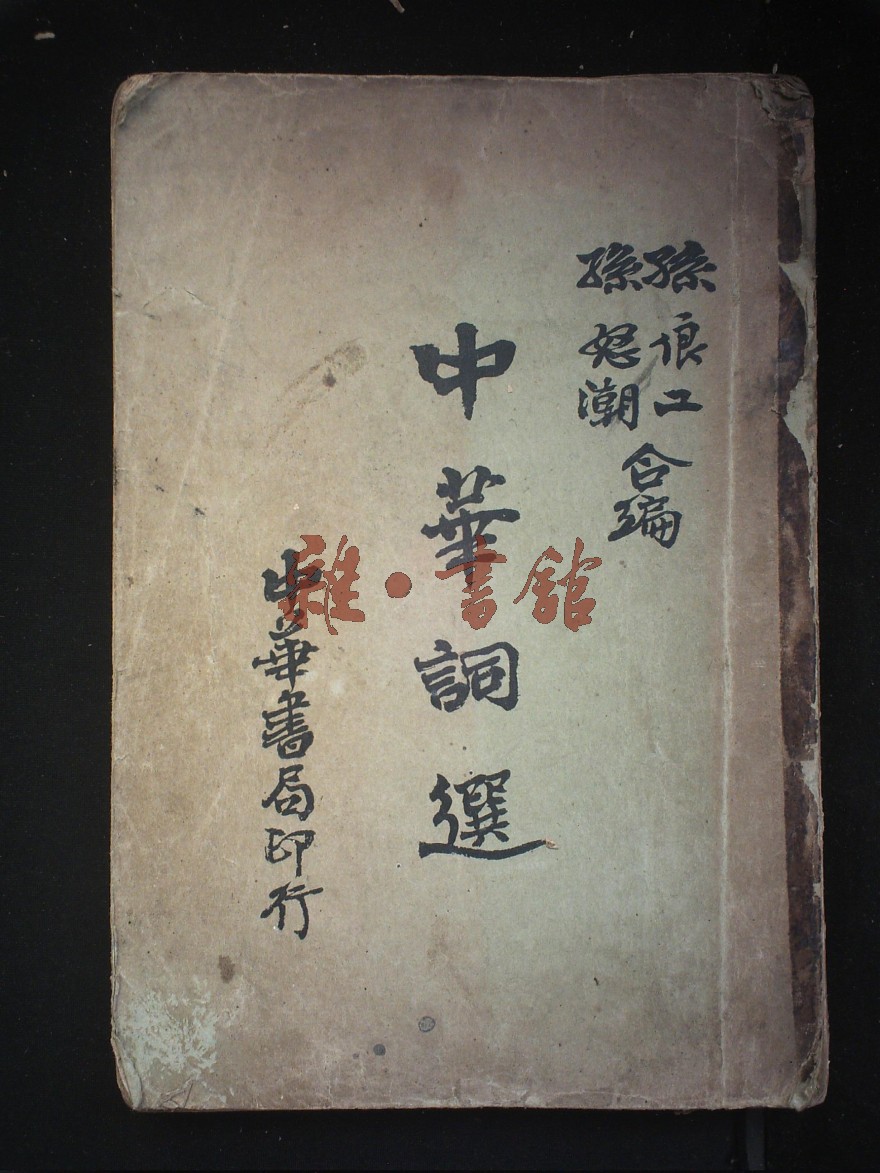 孫俍工
孫怒潮
合編
中華詞選
中華書局印行
雜·書館